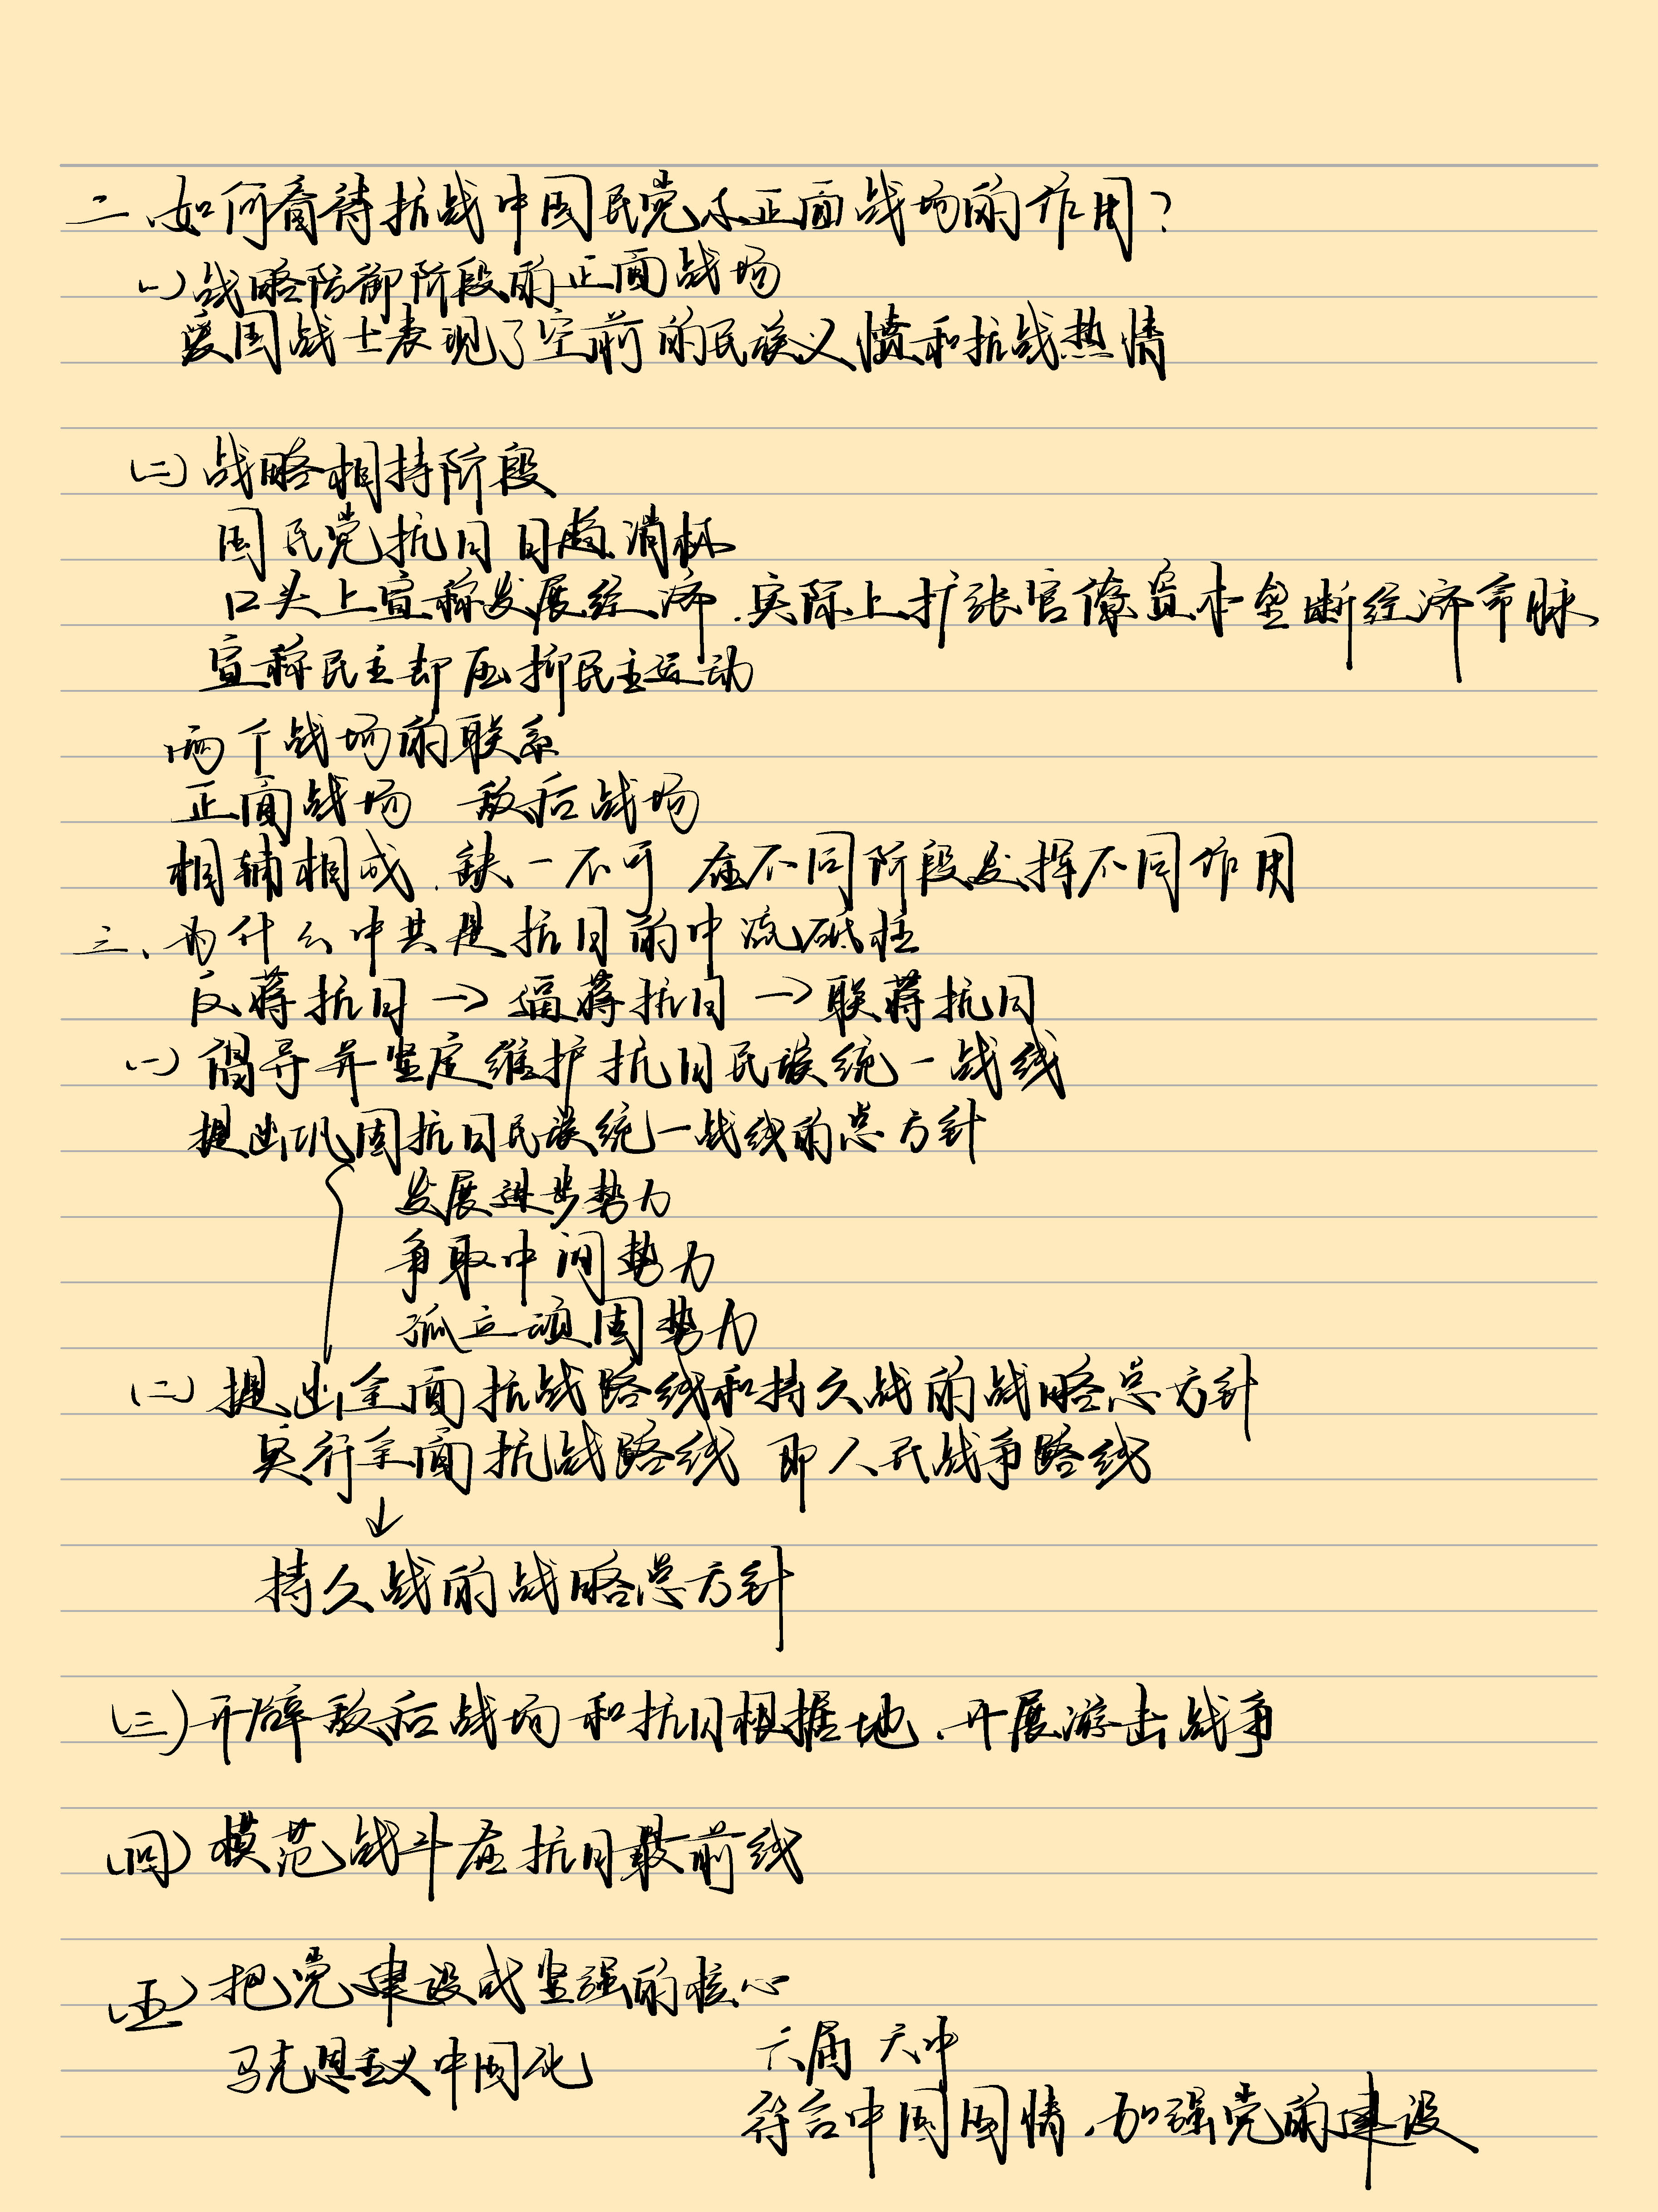 二、如何看待抗战中国民党和正面战场的作用?
(一)战略防御阶段的正面战场
爱国战士表现了空前的民族义愤和抗战热情
(二)战略相持阶段
国民党抗日日趋消极
口头上宣称发展经济、实际上扩张官僚资本垄断经济命脉
宣称民主却压抑民主运动
两个战场的联系
正面战场 敌后战场
相辅相成、缺一不可 在不同阶段发挥不同作用
三、为什么中共是抗日的中流砥柱
反蒋抗日→逼蒋抗日→联蒋抗日
(一)倡导并坚定维护抗日民族统一战线
提出巩固抗日民族统一战线的总方针
发展进步势力
争取中间势力
孤立顽固势力
(二)提出全面抗战路线和持久战的战略总方针
实行全面抗战路线 即人民战争路线
↓
持久战的战略总方针
(三)开辟敌后战场和抗日根据地、开展游击战争
(四)模范战斗在抗日最前线
(五)把党建设成坚强的核心
马克思主义中国化 六届六中
符合中国国情、加强党的建设